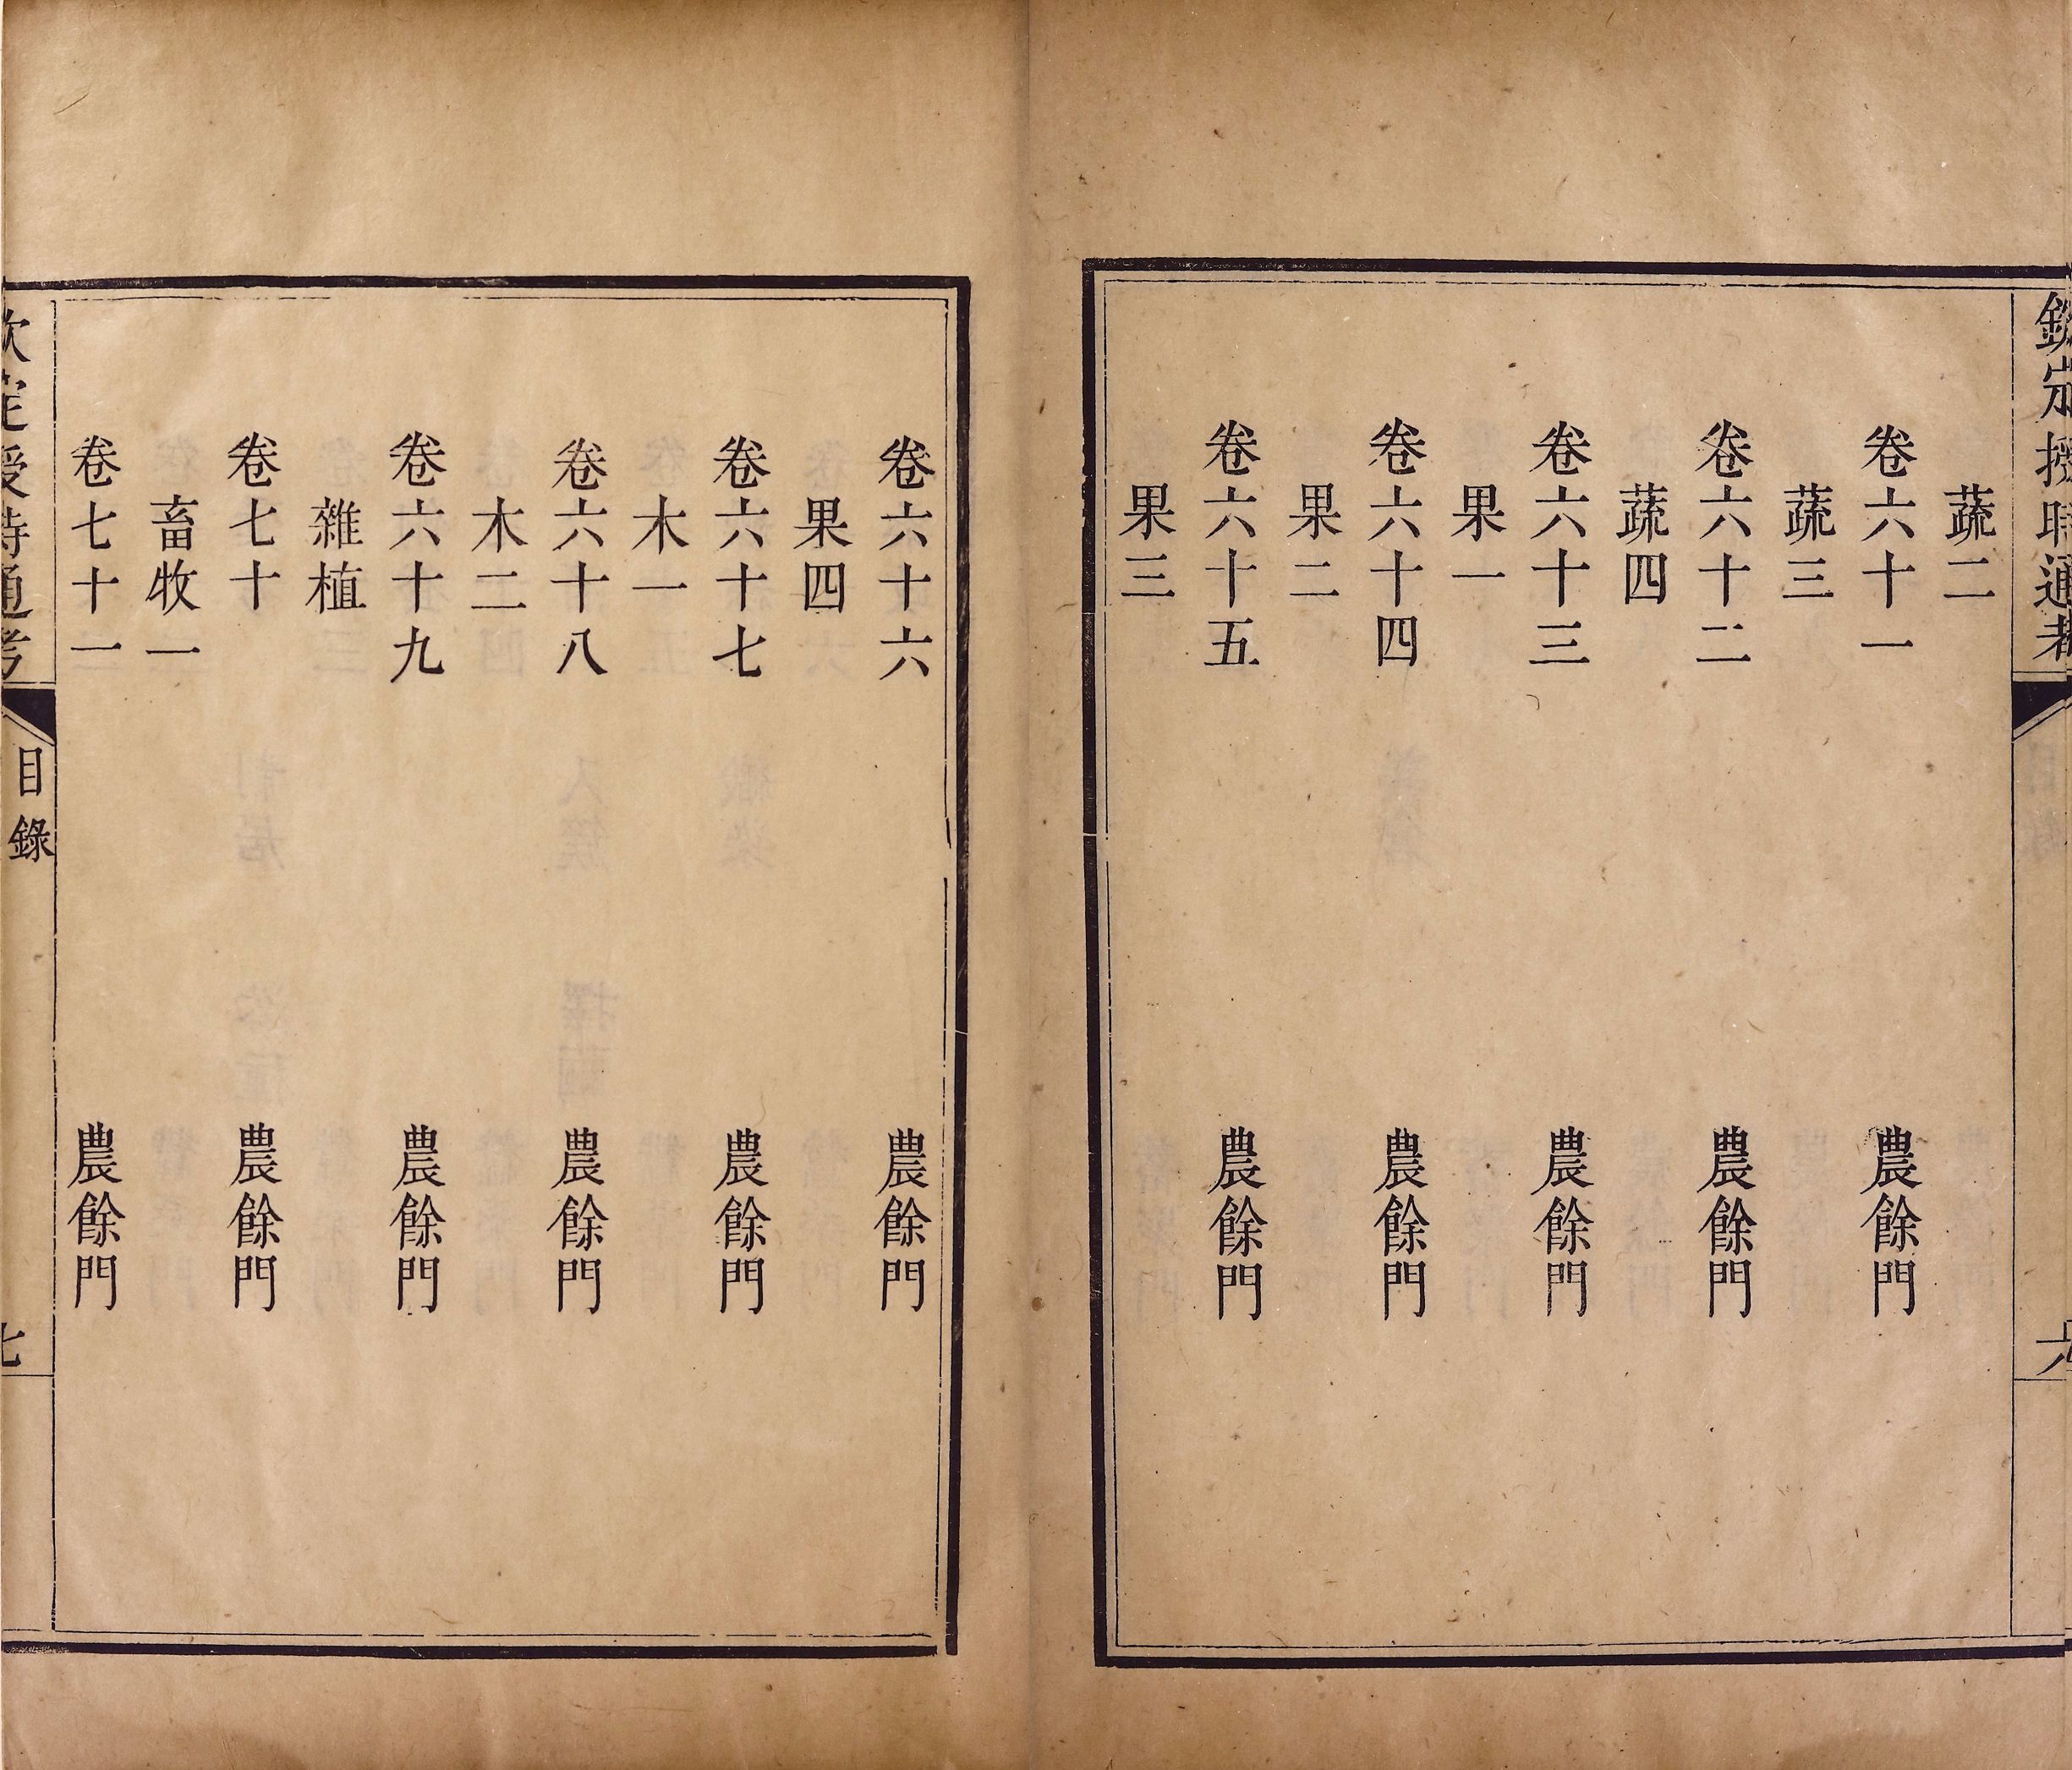 欽定授時通考
六
蔬二
卷六十一 農餘門
蔬三
卷六十二 農餘門
蔬四
卷六十三 農餘門
果一
卷六十四 農餘門
果二
卷六十五 農餘門
果三
卷六十六 農餘門
果四
卷六十七 農餘門
木一
卷六十八 農餘門
木二
卷六十九 農餘門
雜植
卷七十 農餘門
畜牧一
卷七十一 農餘門
欽定授時通考 目錄 七